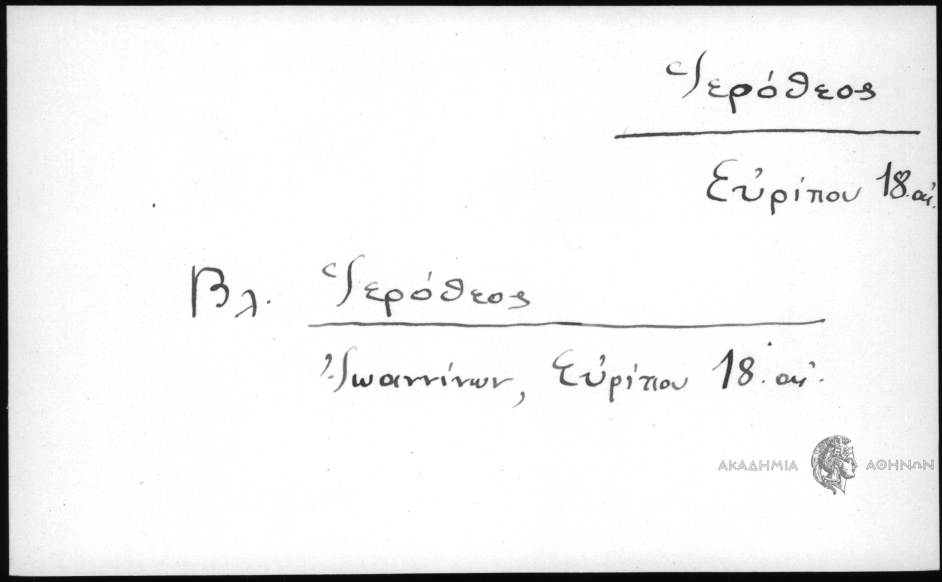 Ἱερόθεος
Εὐρίπου 18 αἰ.
Βλ. Ἱερόθεος
Ἰωαννίνων, Εὐρίπου 18. αἰ.
ΑΚΑΔΗΜΙΑ ΑΘΗΝΩΝ